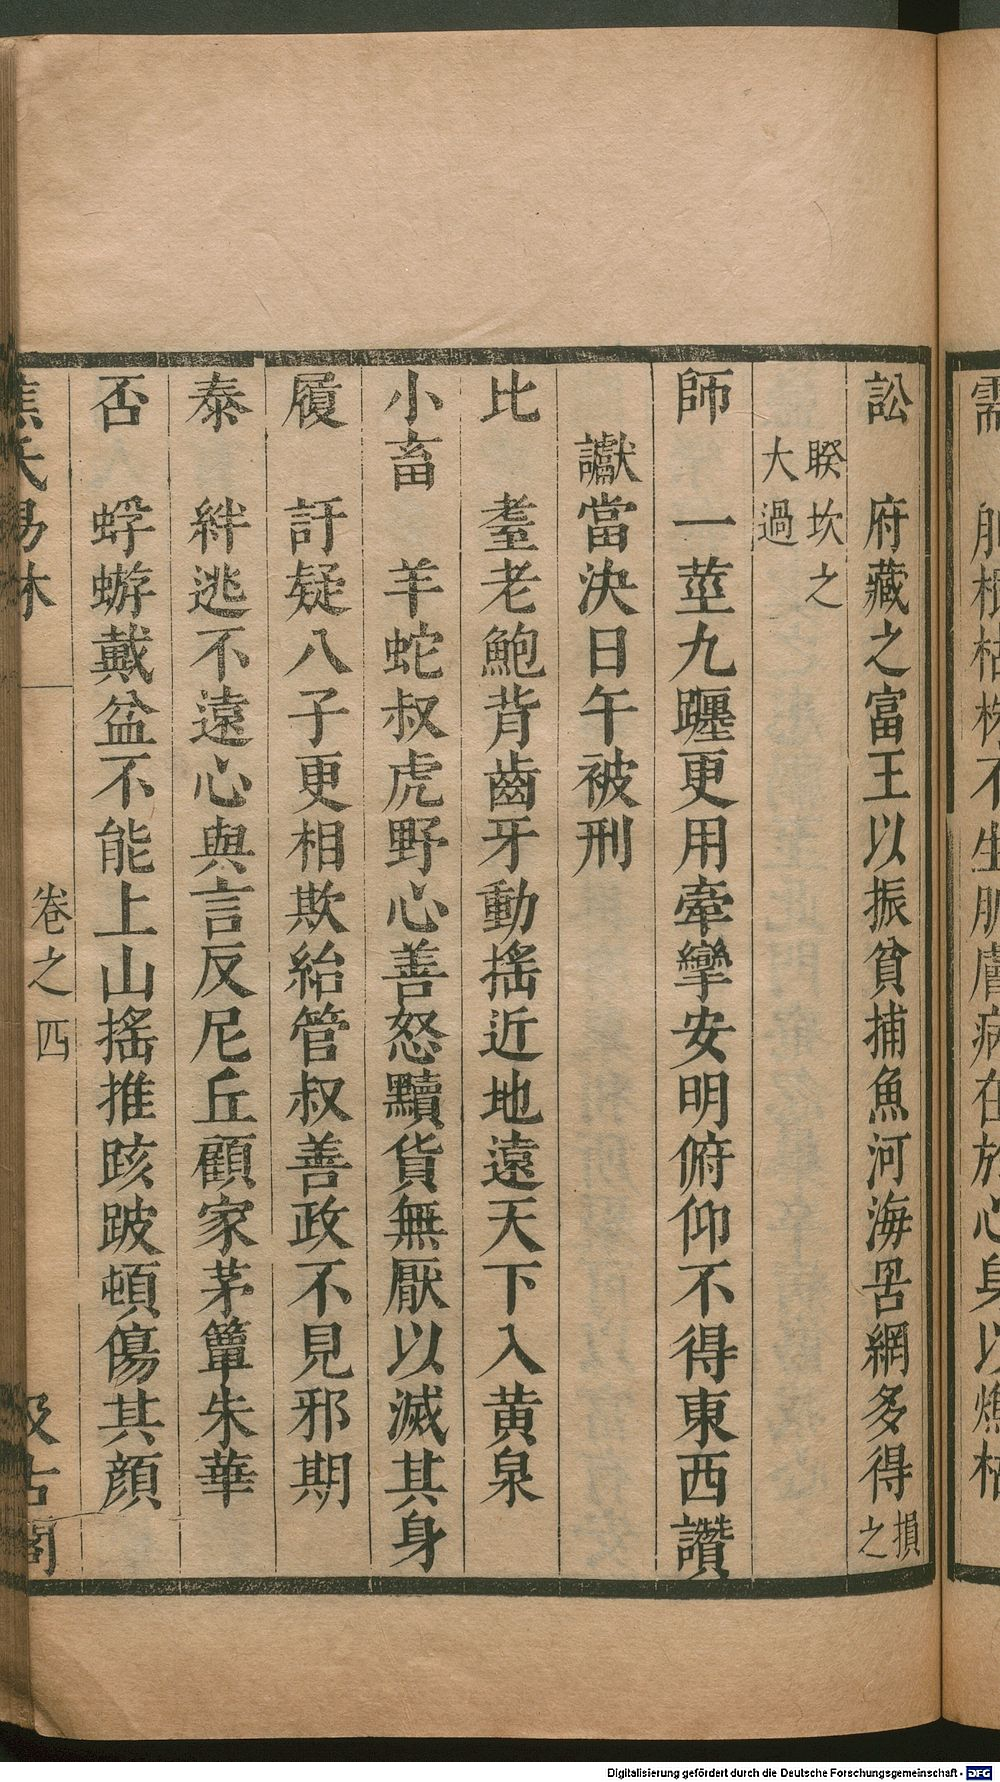 需　根枯株不生肌膚病在於心身以燋枯
訟　府藏之富王以振貧捕魚河海罟網多得損之
睽坎之
大過
師　一莖九躔更用牽攣安明俯仰不得東西讚
讞當決日午被刑
比　耋老鮑背齒牙動搖近地遠天下入黄泉
小畜　羊蛇叔虎野心善怒黷貨無厭以滅其身
履　訐疑八子更相欺紿管叔善政不見邪期
泰　絆逃不遠心與言反尼丘顧家茅簞朱華
否　蜉蝣戴盆不能上山搖推跛頓傷其顔
焦氏易林　卷之四　汲古閣
Digitalisierung gefördert durch die Deutsche Forschungsgemeinschaft - DFG